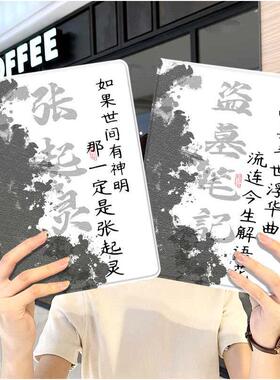 OFFEE
张起灵
如果世间有神明
那一定是张起灵
盗墓笔记
世浮华曲
流连今生解语